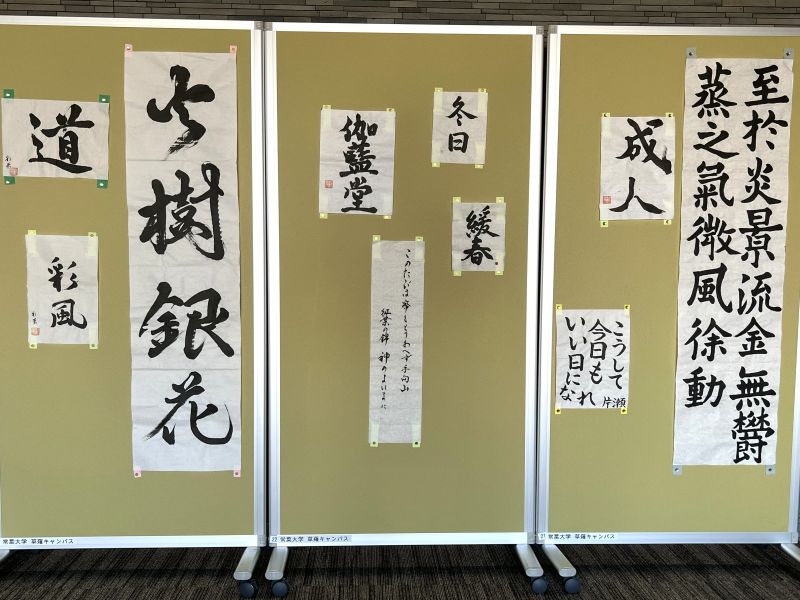 道
彩風
火樹銀花
常葉大学 草薙キャンパス
伽藍堂
冬日
緩春
このたびは幣もとりあへず手向山
紅葉の錦 神のまにまに
22 常葉大学 草薙キャンパス
至於炎景流金無鬱
蒸之氣微風徐動
成人
こうして
今日も
いい日になれ
片瀬
21 常葉大学 草薙キャンパス